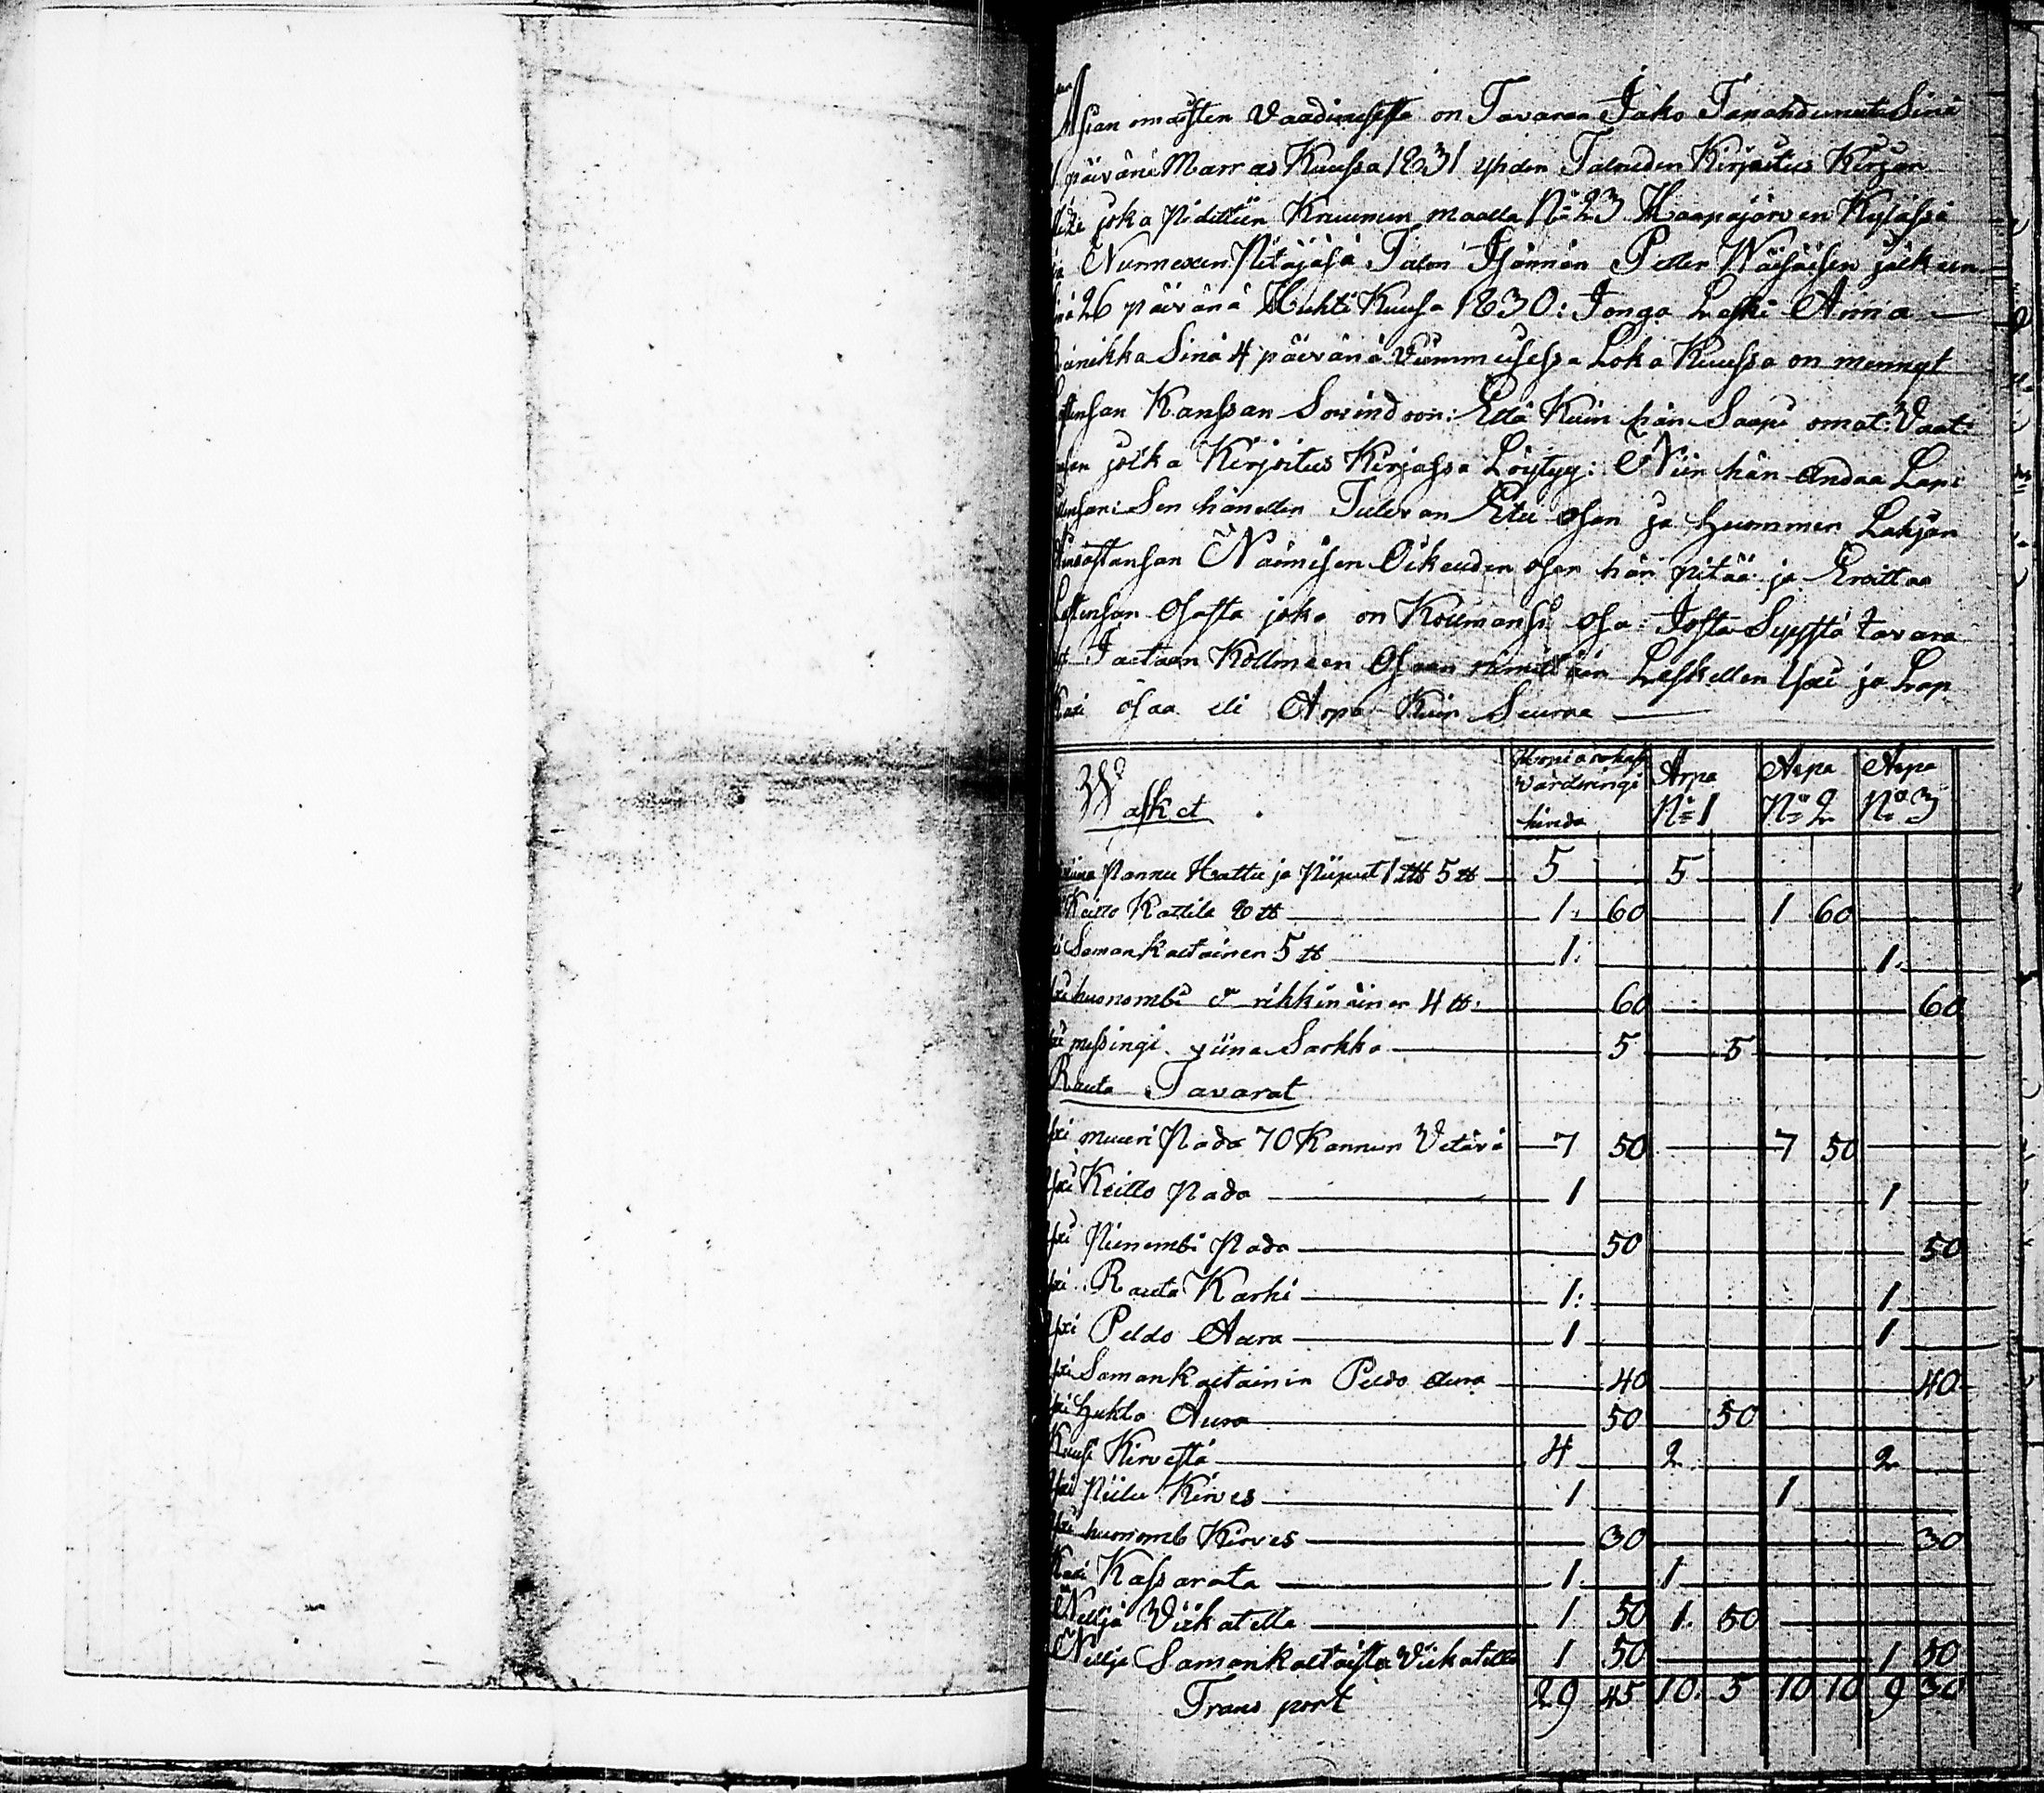 Asian omaisten Vaadimisesta on Tavaran Jako Tapahdunut Sinä
päivänä Marras Kuussa 1831 yhden Talouden Kirjoitus Kirjan
joka Pidettiin Kruunun maalla No 23 Haapajärven Kylässä
ja Nurmexen Pitäjäsä Talon Isännän Petter Wäisäisen jälkeen
26 päivänä Huhti Kuusa 1830: Jonga Leski Anna
Sinä 4 päivänä Viimmeisessä Loka Kuussa on mennyt
Lastensan Kanssan Sovindoon: Että Kuin hän Saapi omat Vaat:
jotka Kirjoitus Kirjassa Löytyy: Niin hän andaa Lapsi
Sen hänellen Tulevan Etu osan ja huommen Lahjan
Naimisen Oikeuden osan hän pitää ja Eroittaa
Lastensan Osasta joka on Kolmansi osa: Josta Syystä tavara
Jaetaan Kollmeen Osaan nimittäin Leskellen Yxi ja Lap
Kaxi osaa eli Arpa Kuin Seuraa
Wasket
värderingi hinda
Arpa No 1
Arpa No 2
Arpa No 3
Viina Pannu Hattu ja Piiput 1 5 ℔ 5 5
Keitto Kattila 8 ℔ 1: 60 1 60
Samankaltainen 5 ℔ 1: 1:
Yxi huonombi rikkinäinen 4 ℔: 60 60
Yxi messingi viina Sarkka 5 5
Rauta Tavarat
Yxi muuri Pada 70 Kannun Vetävä 7 50 7 50
Yxi Keitto Pada 1 1
Yxi Pienembi Pada 50 50
Yxi Rauta Karhi 1: 1
Yxi Peldo Aura 1 1
Yxi Samankaltainen Peldo Aura 40 40
Yxi huhta Aura 50 50
Kuusi Kirvestä 4 2 2
Yxi Piilu Kirves 1 1
Yxi huonomb Kirves 30 30
Kaxi Kassarata 1. 1
Neljä Viikatetta 1 50 1. 50
Neljä Samankaltaista Viikatetta 1 50 1 50
Transport 29 45 10. 5 10 10 9 30